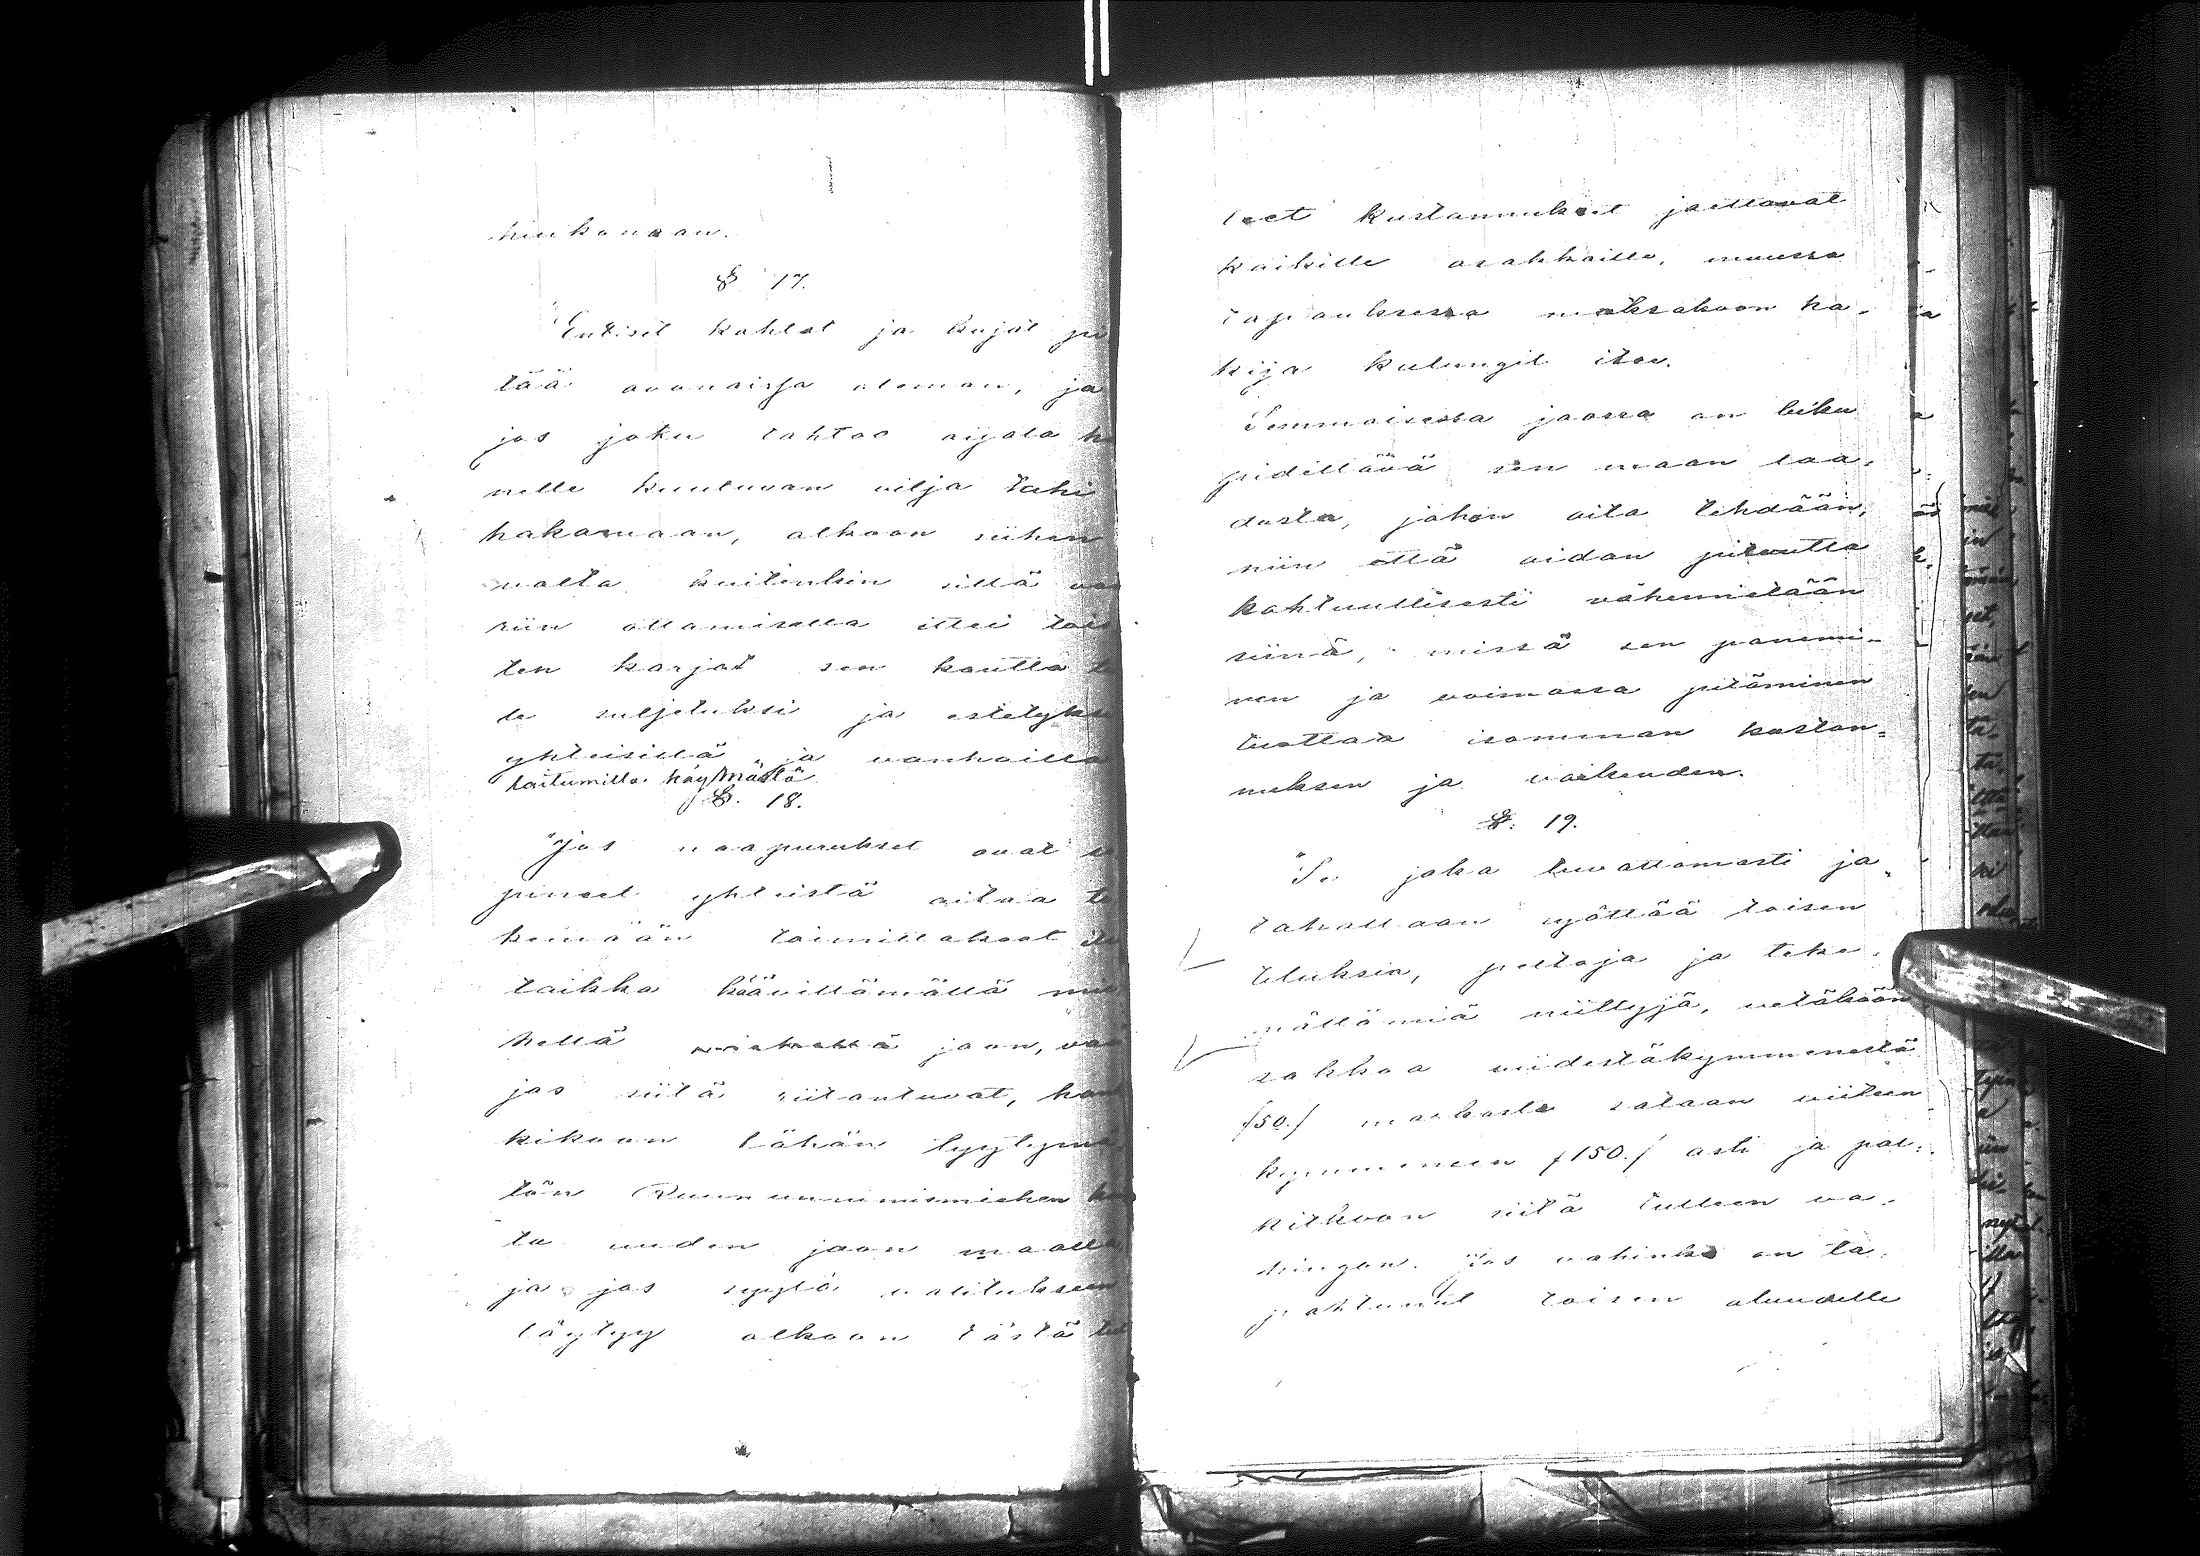 hinkonaan.
§ 17.
"Entiset kahlat ja kujat pi
tää avonaissa oleman, ja
jos joku tahtoo aijata hä
nelle kuuluvan vilja tahi
hakamaan, alkoon siihen
valta kuitenkin sillä va
riin ottamisella ettei tois
ten karjat sen kautta
le suljetuksi ja estetyksi
yhteisillä ja vanhoilla
laitumilla käymästä
§. 18.
"Jos naapurukset ovat so
pineet yhteistä aitaa te
kemään toimittakoot
taikka häävittämättä
hellä miehellä jaon, vaan
jos siitä riitantuvat, han
kikoon tähän tyytymä
tön Ruununnimismiehen
ta uuden jaon maalla
ja jos syytä valitukseen
löytyy olkoon tästä tul
leet kustannukset jaettavat
kaikille osakkaille, muussa
tapauksessa maksakoon ha,
kija kulungit itse.
Semmoisessa jaossa on luku
pidettävä sen maan laa,
dusta, johon aita tehdään,
niin että aidan pituutta
kohtuullisesti vähennetään
siinä, missä sen panemi-
nen ja voimassa pitäminen
tuottaa isomman kustan„
nuksen ja vaikeuden.
§. 19.
"Se joka luvattomasti ja„
tahallaan syöttää toisen
tiluksia, peltoja ja teke,
mättömiä niittyjä, vetäköön
sakkoa viidestäkymmenestä
/50./ markasta sataan viiteen
kymmeneen /150./ asti ja pal,
kitkoon siitä tulleen va,
hingon. Jos vahinko on ta,
pahtunut toisen alueelle